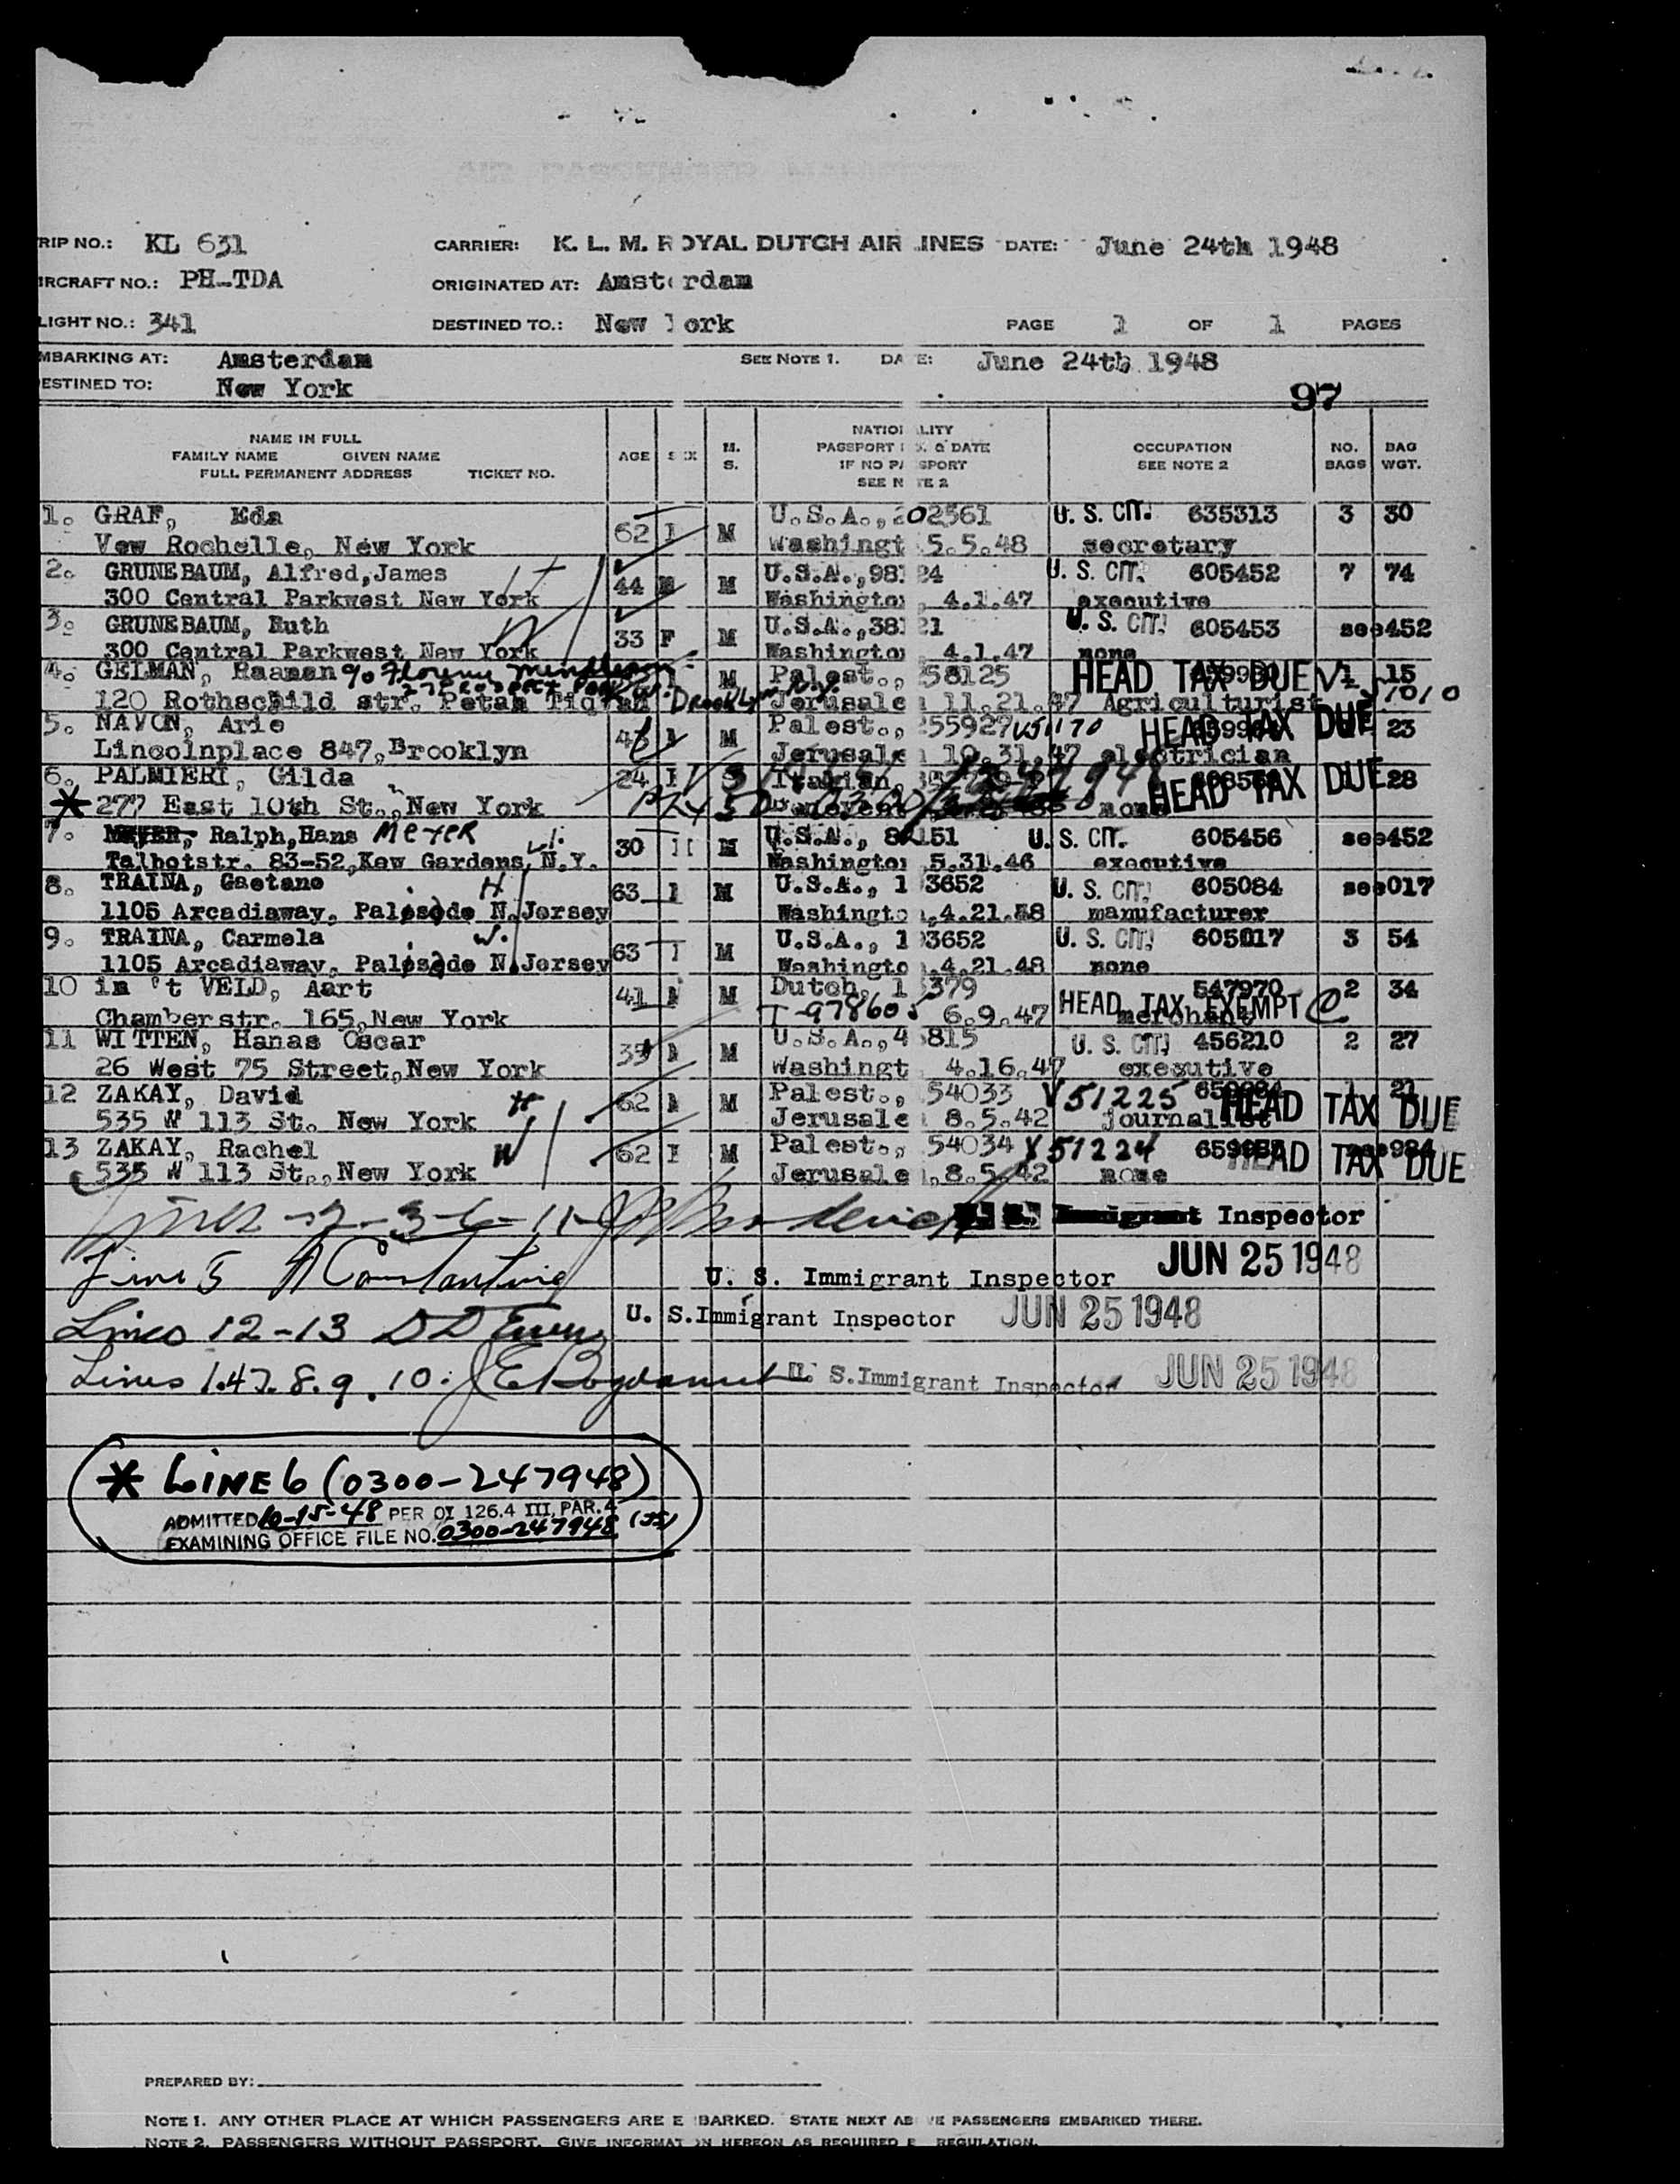 RIP NO.: KL 631 CARRIER: K. L. M. R OYAL DUTCH AIR LINES DATE: June 24th 1948
IRCRAFT NO.: PH-TDA ORIGINATED AT: Amst rdam
LIGHT NO.: 341 DESTINED TO.: New ork PAGE 1 OF 1 PAGES
MBARKING AT: Amsterdam SEE NOTE 1. DA E: June 24th 1948
ESTINED TO: New York
97
NAME IN FULL
FAMILY NAME GIVEN NAME
FULL PERMANENT ADDRESS TICKET NO.
AGE S EX M. S.
NATIO ALITY
PASSPORT & DATE
IF NO PA SPORT
SEE N TE 2
OCCUPATION
SEE NOTE 2
NO. BAGS
BAG WGT.
1. GRAF, Eda 62 M U.S.A., 202561 U. S. CIT. 635313 3 30
Vew Rochelle, New York Washingt 5.5.48 secretary
2. GRUNEBAUM, Alfred,James 44 M M U.S.A.,98 24 U. S. CIT. 605452 7 74
300 Central Parkwest New York Washingto 4.1.47 executive
3. GRUNEBAUM, Ruth 33 F M U.S.A.,38 21 U. S. CIT. 605453 see452
300 Central Parkwest New York Washingto 4.1.47 none
4. GELMAN, Raanan M Palest., 58125 HEAD TAX DUE 15
120 Rothschild str. Petah Tiqvah Brooklyn N.Y. Jerusale 11.21.47 Agriculturist
5. NAVON, Arie M Palest., 255927 V51170 HEAD TAX DUE 23
Lincolnplace 847,Brooklyn Jerusale 10.31.47 electrician
6. PALMIERI, Gilda 24 S Italian, HEAD TAX DUE 28
* 277 East 10th St., New York none
7. MEYER, Ralph,Hans MEYER 30 M M U.S.A., 151 U. S. CIT. 605456 see452
Talbotstr. 83-52,Kew Gardens, N.Y. Washingto 5.31.46 executive
8. TRAINA, Gaetano H 63 M U.S.A., 1 3652 U. S. CIT. 605084 see017
1105 Arcadiaway, Palisade N.Jersey Washingto .4.21.48 manufacturer
9. TRAINA, Carmela W. 63 M U.S.A., 1 3652 U. S. CIT. 605017 3 54
1105 Arcadiaway, Palisade N.Jersey Washingto .4.21.48 none
10 in 't VELD, Aart 41 M Dutch, 1 379 547970 2 34
Chamberstr. 165,New York T-978605 6.9.47 HEAD TAX EXEMPT merchant
11 WITTEN, Hanas Oscar 39 M U.S.A.,4 815 U. S. CIT. 456210 2 27
26 West 75 Street,New York Washingt 4.16.47 executive
12 ZAKAY, David H 62 M Palest., 54033 V51225 1 21
535 W 113 St. New York Jerusale 8.5.42 journalist HEAD TAX DUE
13 ZAKAY, Rachel W 62 M Palest., 54034 V51224 see984
535 W 113 St., New York Jerusale .8.5.42 none HEAD TAX DUE
Lines -2-3-6-11- Immigrant Inspector
Line 5 A Constantine U. S. Immigrant Inspector JUN 25 1948
Lines 12-13 U. S.Immigrant Inspector JUN 25 1948
Lines 1.4.7.8.9.10: U. S.Immigrant Inspector JUN 25 1948
* LINE 6 (0300-247948)
ADMITTED 10-15-48 PER OI 126.4 III, PAR.4
EXAMINING OFFICE FILE NO. 0300-247948 (JS)
PREPARED BY:
NOTE 1. ANY OTHER PLACE AT WHICH PASSENGERS ARE E BARKED. STATE NEXT AB VE PASSENGERS EMBARKED THERE.
NOTE 2. PASSENGERS WITHOUT PASSPORT. GIVE INFORMAT ON HEREON AS REQUIRED REGULATION.